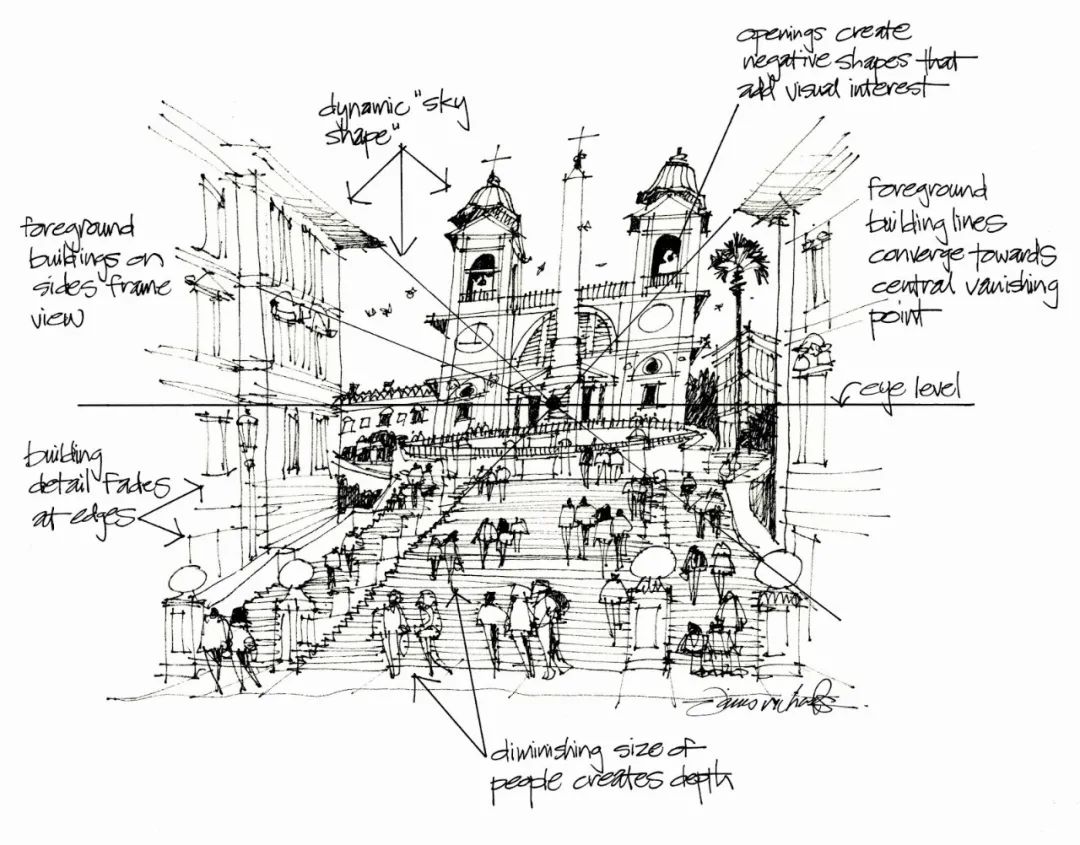 openings create
negative shapes that
add visual interest
dynamic "sky
shape"
foreground
buildings on
sides frame
view
foreground
building lines
converge towards
central vanishing
point
eye level
building
detail fades
at edges
diminishing size of
people creates depth